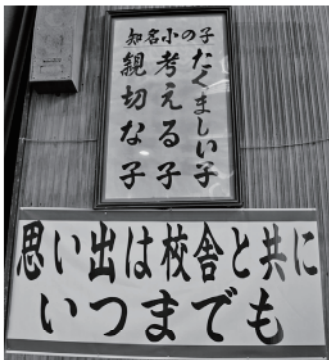 知名小の子
たくましい子
考える子
親切な子
思い出は校舎と共に
いつまでも